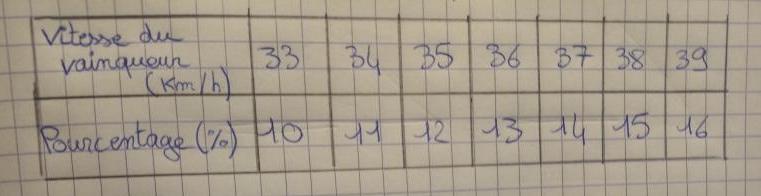 Vitesse du
vainqueur
(Km/h) 33 34 35 36 37 38 39
Pourcentage (%) 10 11 12 13 14 15 16